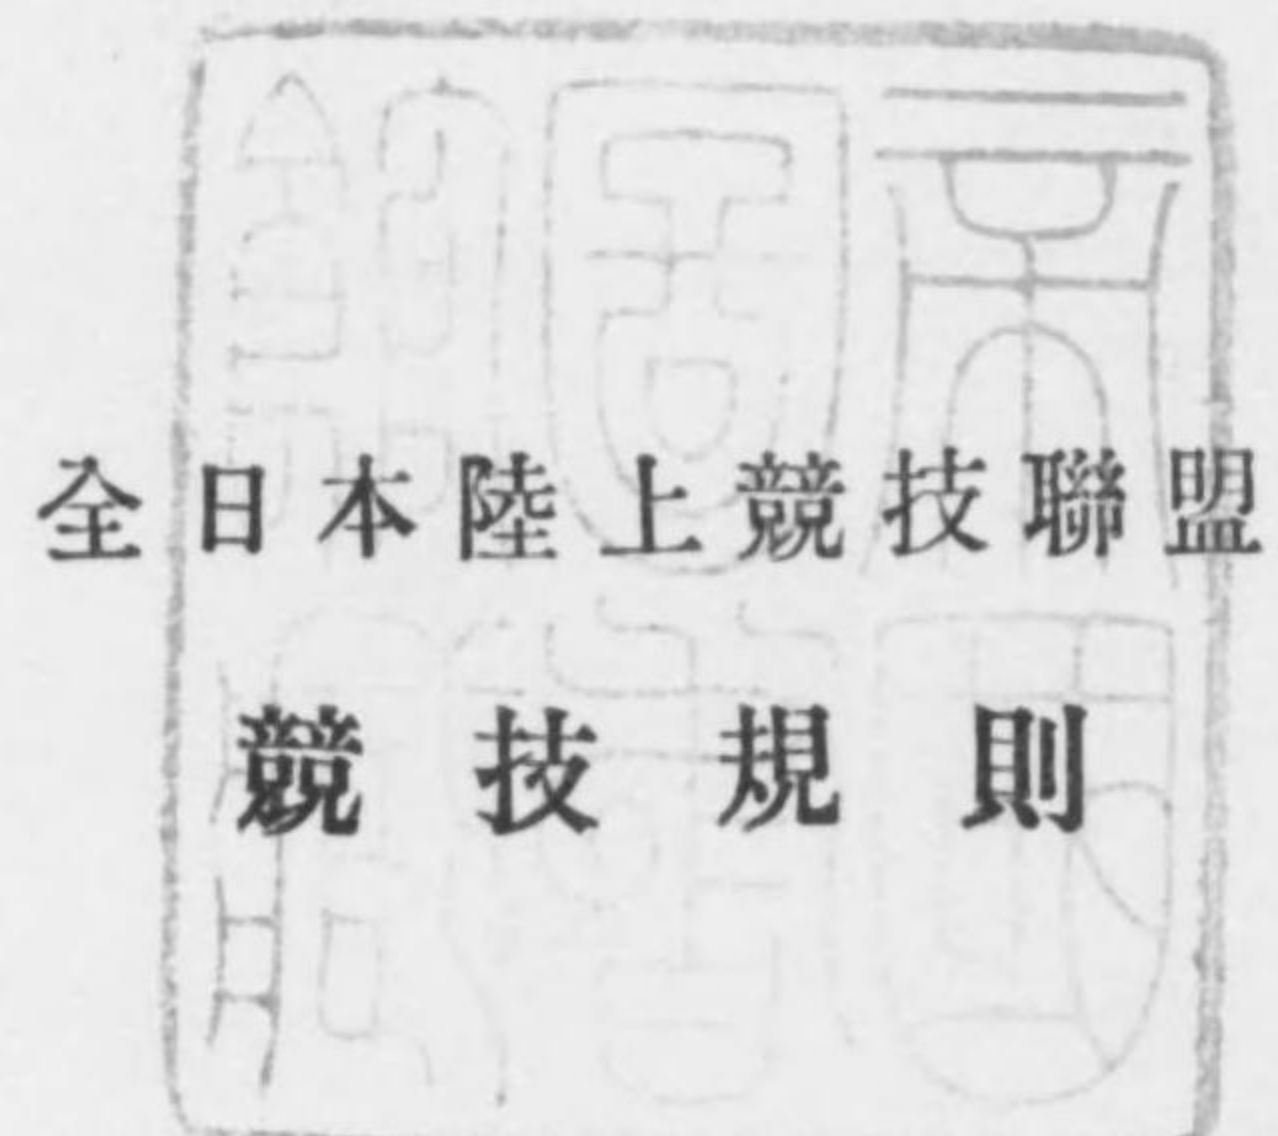 全日本陸上競技聯盟
競技規則